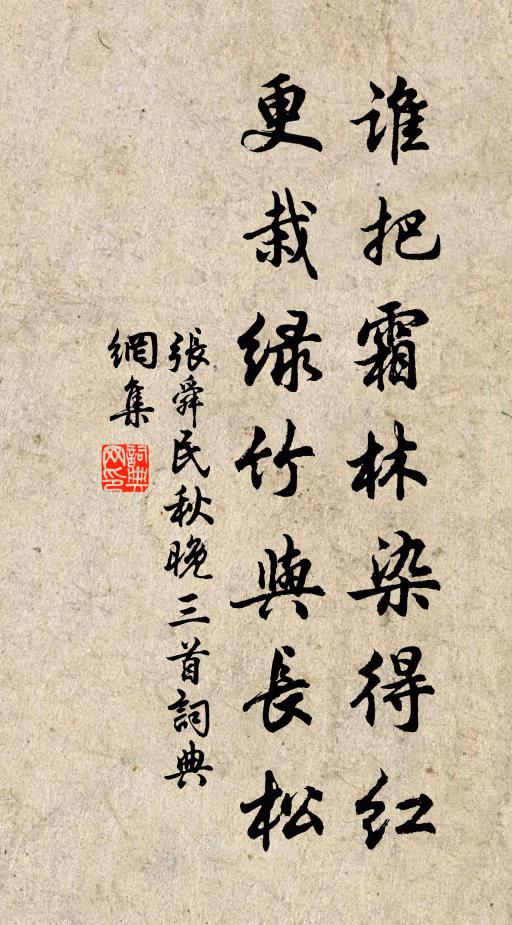 谁把霜林染得红
更栽绿竹與長松
張舜民秋晚三首詞典
網集
詞典
网印